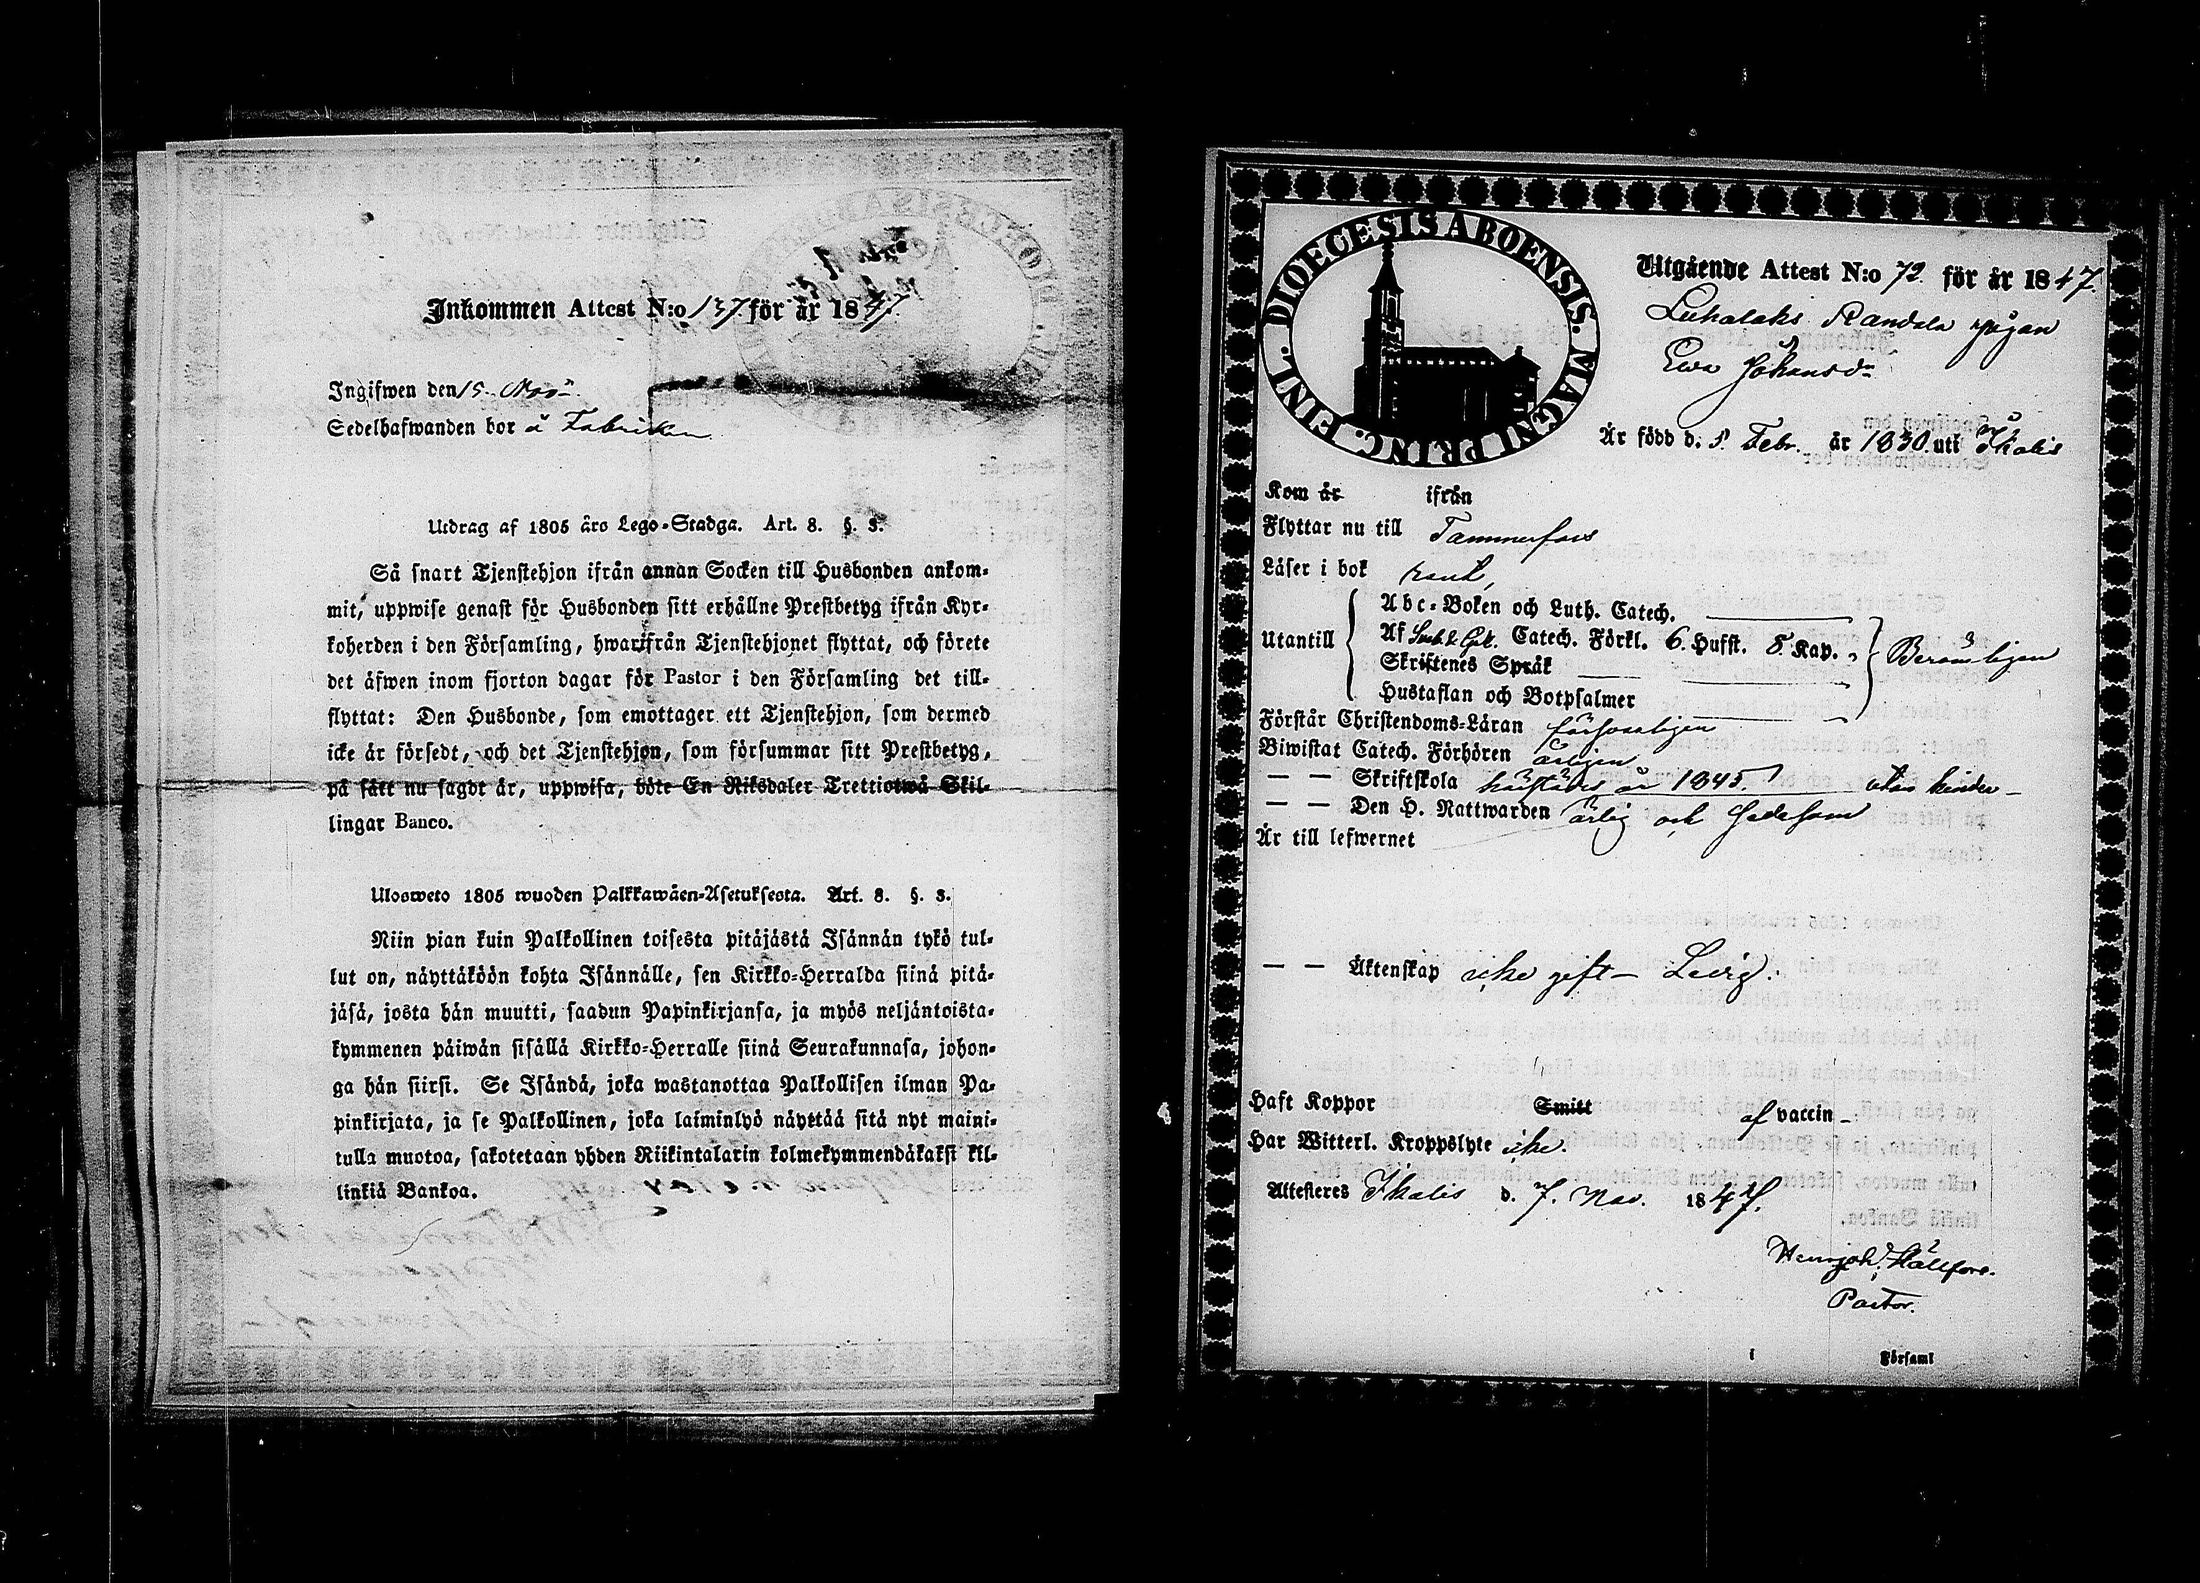 Inkommen Attest N:o 137 för år 1847.
Ingifwen den 15. Nov.
Sedelhafwanden bor å Fabriken
Utdrag af 1805 års Lego-Stadga. Art. 8. §. 3.
Så snart Tjenstehjon ifrån annan Socken till Husbonden ankom-
mit, uppwise genast för Husbonden sitt erhållne Prestbetyg ifrån Kyr-
koherden i den Församling, hwarifrån Tjenstehjonet flyttat, och förete
det äfwen inom fjorton dagar för Pastor i den Församling det till-
flyttat: Den Husbonde, som emottager ett Tjenstehjon, som dermed
icke är försedt, och det Tjenstehjon, som försummar sitt Prestbetyg,
på sätt nu sagdt är, uppwisa, böte En Riksdaler Trettiotwå Skil-
lingar Banco.
Ulosweto 1805 wuoden Palkkawäen-Asetuksesta. Art. 8. §. 3.
Niin pian kuin Palkollinen toisesta pitäjästä Isännän tykö tul-
lut on, näyttäköön kohta Isännälle, sen Kirkko-Herralda siinä pitä-
jäsä, josta hän muutti, saadun Papinkirjansa, ja myös neljäntoista-
kymmenen päiwän sisällä Kirkko-Herralle siinä Seurakunnasa, johon-
ga hän siirsi. Se Isändä, joka wastanottaa Palkollisen ilman Pa-
pinkirjata, ja se Palkollinen, joka laiminlyö näyttää sitä nyt maini-
tulla muotoa, sakotetaan yhden Riikintalarin kolmekymmendäkaksi kil-
linkiä Bankoa.
DIOECESIS ABOENSIS. MAGNI PRINC. FINL.
Utgående Attest N:o 72 för år 1847.
Luhalaks Randala pigan
Ewa Johansdr
Är född d. 5 Febr. år 1830 uti Ikalis
Kom år ifrån
Flyttar nu till Tammerfors
Läser i bok rent,
Utantill
Abc-Boken och Luth. Catech.
Af Catech. Förkl. 6. Hufst. 8 Kap.
Skriftenes Språk
Hustaflan och Botpsalmer
Berömligen
Förstår Christendoms-Läran försvarligen
Biwistat Catech. Förhören årligen
— — Skriftskola härstädes år 1845.
— — Den H. Nattwarden utan hinder
Är till lefwernet ärlig och sedesam
— — Äktenskap icke gift — Ledig.
Haft Koppor Smitt af vaccin
Har Witterl. Kroppslyte icke.
Attesteres Ikalis d. 7. Nov. 1847.
Pastor.
i Församl